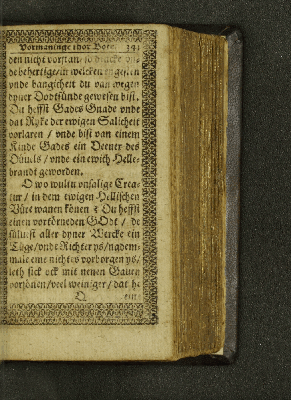 Vormaninge thor Bote. 391
den nicht vorstan / so dencke vn-
de behertige in welcken engesten
vnde bangicheit du van wegen
dyner Dodtsünde gewesen bist.
Du heffst Gades Gnade vnde
dat Ryke der ewigen Salicheit
vorlaren / vnde bist van einem
Kinde Gades ein Deener des
Düuels / vnde ein ewich Helle-
brandt geworden.
O wo wultu vnsalige Crea-
tur / in dem ewigen Hellischen
Vüre wanen können? Du heffst
einen vortörneden GOdt / de
sülues aller dyner Wercke ein
Tüge / vnde Richter ys / nadem-
male eme nichtes vorborgen ys /
leth sick ock mit nenen Gauen
vorsönen / veel weiniger / dat he
ein